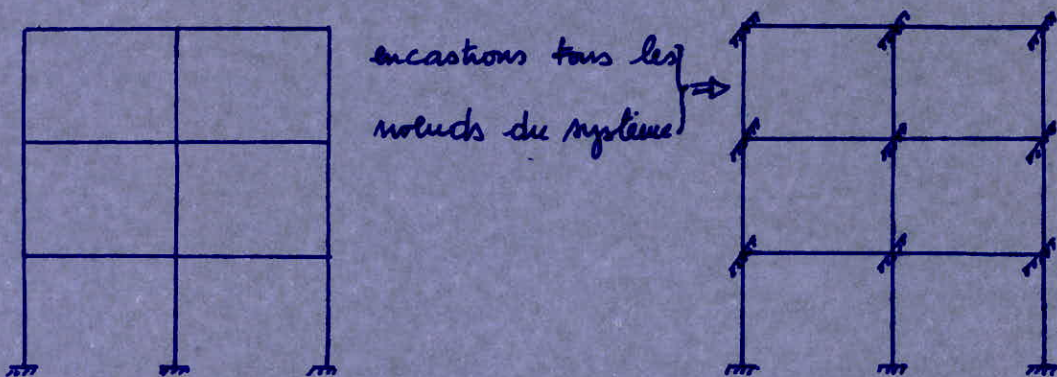 encastrons tous les
nœuds du système